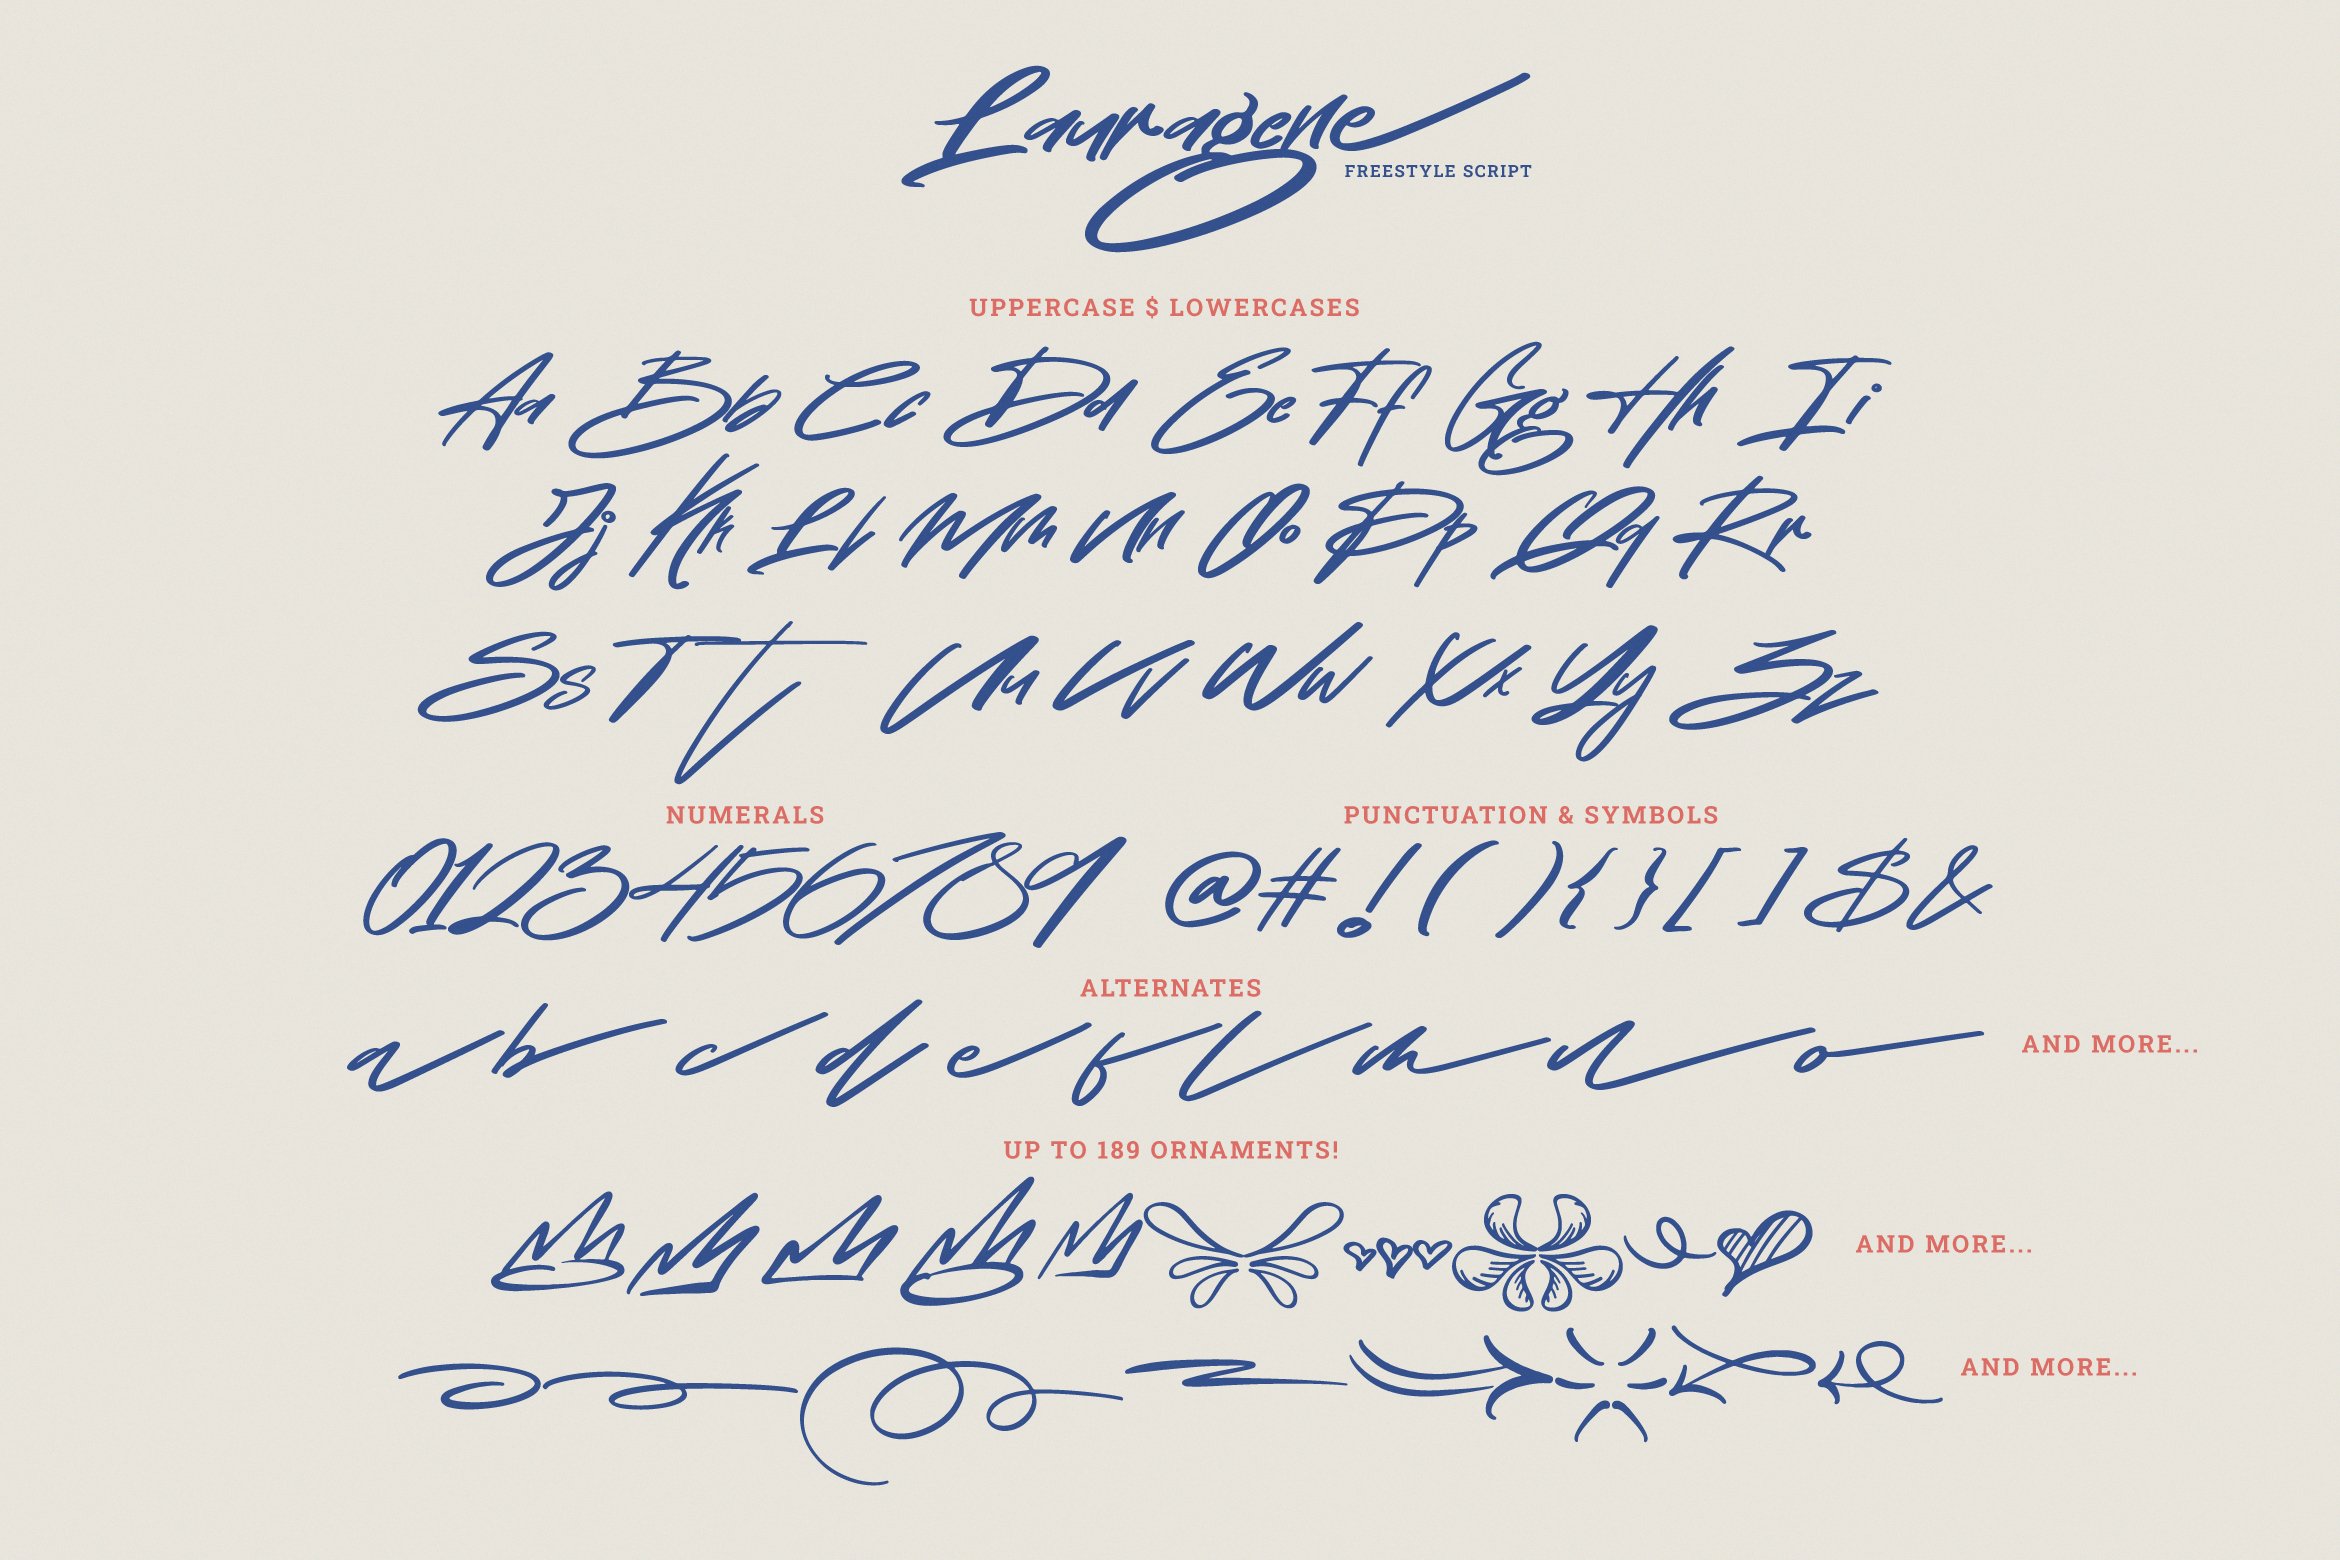 Lauragene
FREESTYLE SCRIPT
UPPERCASE $ LOWERCASES
Aa Bb Cc Dd Ee Ff Gg Hh Ii
Jj Kk Ll Mm Nn Oo Pp Qq Rr
Ss Tt Uu Vv Ww Xx Yy Zz
NUMERALS
0123456789
PUNCTUATION & SYMBOLS
@#!(){}[]$&
ALTERNATES
a b c d e f l m n o AND MORE...
UP TO 189 ORNAMENTS!
AND MORE...
AND MORE...